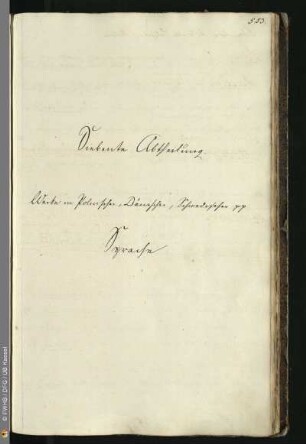 553.
Siebente Abtheilung
Werke in Polnischer, Dänischer, Schwedischer pp
Sprache
© FWHB / DFG / UB Kassel